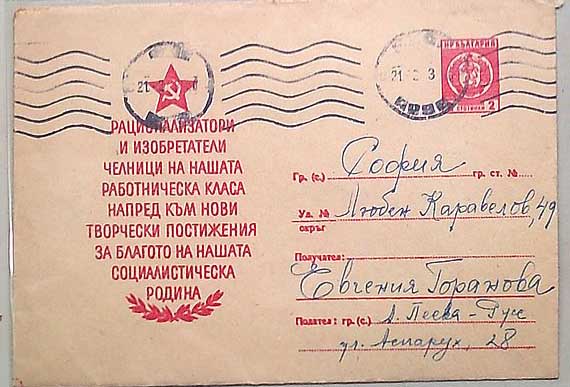 21
21 3
НР БЪЛГАРИЯ
СТОТИНКИ 2
РАЦИОНАЛИЗАТОРИ
И ИЗОБРЕТАТЕЛИ
ЧЕЛНИЦИ НА НАШАТА
РАБОТНИЧЕСКА КЛАСА
НАПРЕД КЪМ НОВИ
ТВОРЧЕСКИ ПОСТИЖЕНИЯ
ЗА БЛАГОТО НА НАШАТА
СОЦИАЛИСТИЧЕСКА
РОДИНА
Гр. (с.) София гр. ст. №
Ул. № Любен Каравелов, 49
окръг
Получател:
Евгения Горанова
Подател: гр. (с.) Л. Пеева - Русе
ул. Аспарух, 28